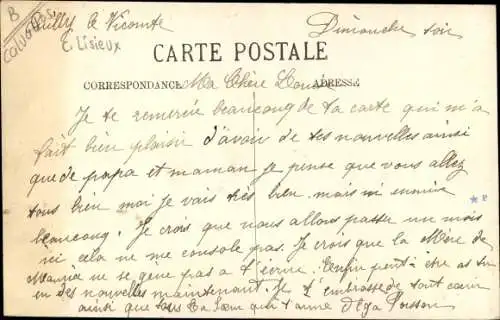 B
Calvados
E. Lisieux
Ouilly le Vicomte
Dimanche soir
CARTE POSTALE
CORRESPONDANCE
ADRESSE
Ma Chère Louise
Je te remercie beaucoup de ta carte qui m'a
fait bien plaisir d'avoir de tes nouvelles ainsi
que de papa et maman je pense que vous allez
tous bien moi je vais très bien mais m'ennuie
beaucoup. Je crois que nous allons passer un mois
ici cela ne me console pas. Je crois que la Mère de
ne se gène pas a t'écrire. Enfin peut être as tu
eu des nouvelles maintenant. Je t'embrasse de tout cœur
ainsi que tous Ta Sœur qui t'aime